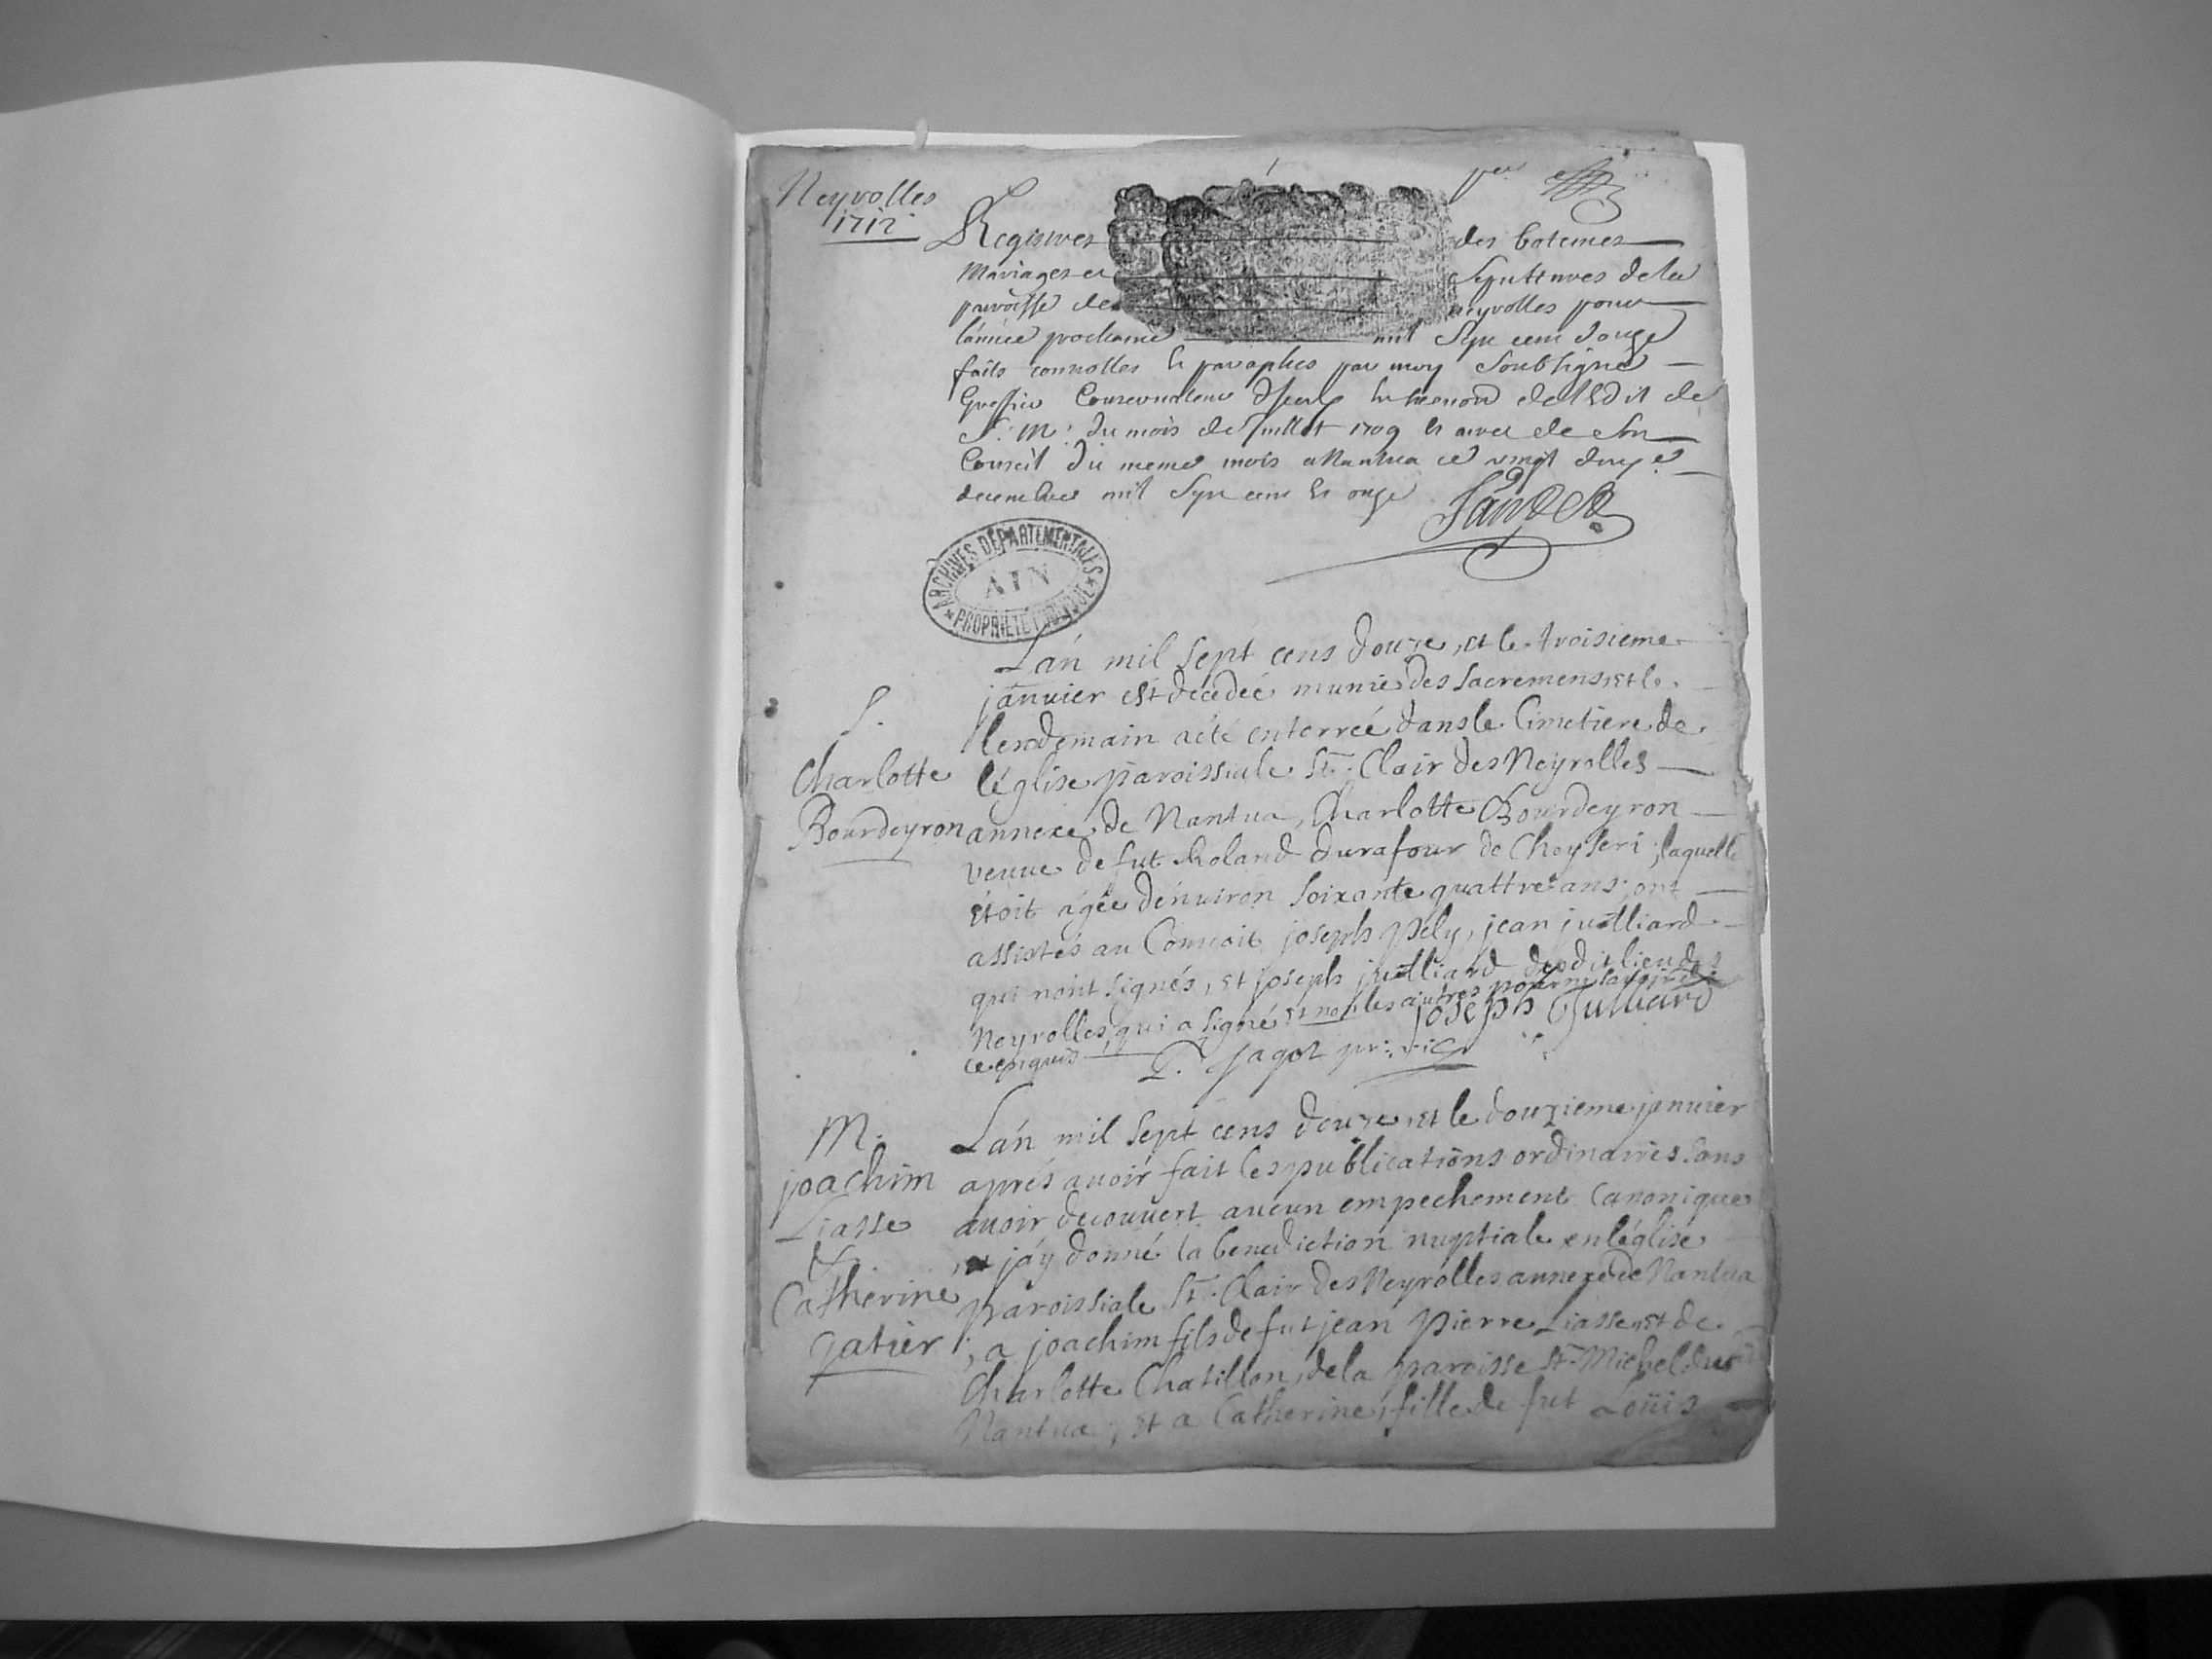 Neyrolles
1712
1
per
Registres des batemes
Mariages et Sepultures de la
paroisse de neyrolles pour
l'année prochaine mil Sept cent douze
faits cottes & paraphes par moy Soubsigné
Greffier Conservateur de l'Edit de
S. M. du mois de Juillet 1709 & de Son
Conseil du meme mois a Nantua ce vingt
decembre mil Sept cent & onze
ARCHIVES DÉPARTEMENTALES
AIN
PROPRIÉTÉ PUBLIQUE
Lán mil sept cens douze, et le troisieme
janvier est decedée munie des Sacremens, et le
lendemain aété enterreé dans le Cimetiere de
l'église paroissiale St. Clair des Neyrolles
annexe de Nantua, Charlotte Bourdeyron
veuve de fut Roland Durafour de Cheyseri, laquelle
étoit agée dénviron soixante quattre ans; ont
assistés au Convoit joseph Pely, jean juilliard
qui n'ont signés, et joseph juilliard des dit lieu des
Neyrolles qui a signé et non les autres pour ne savoir de
ce enquis
Joseph Julliard
Jagot pr: vic
S.
Charlotte
Bourdeyron
M.
joachim
Liasse
&
Catherine
gatier
Lán mil sept cens douze, et le douzieme janvier
aprés avoir fait les publications ordinaires sans
avoir decouvert aucun empechement Canonique
, et jáy donné la benediction nuptiale en léglise
paroissiale St. Clair des Neyrolles annexe de Nantua
, a joachim fils de fut jean Pierre Liasse, et de
Charlotte Chatillon, de la paroisse St. Michel du
Nantua, et a Catherine, fille de fut Loüis